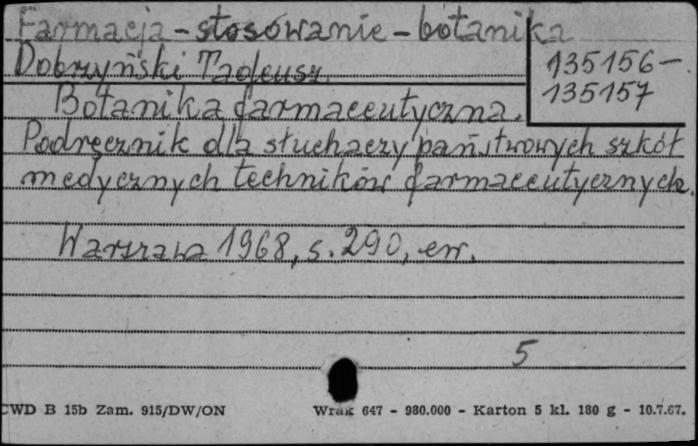 Farmacja - stosowanie - botanika
Dobrzyński Tadeusz.
135156-
135157
Botanika farmaceutyczna.
Podręcznik dla słuchaczy państwowych szkół
medycznych techników farmaceutycznych.
Warszawa 1968, s. 290, err.
5
CWD B 15b Zam. 915/DW/ON Wrak 647 - 980.000 - Karton 5 kl. 180 g - 10.7.67.